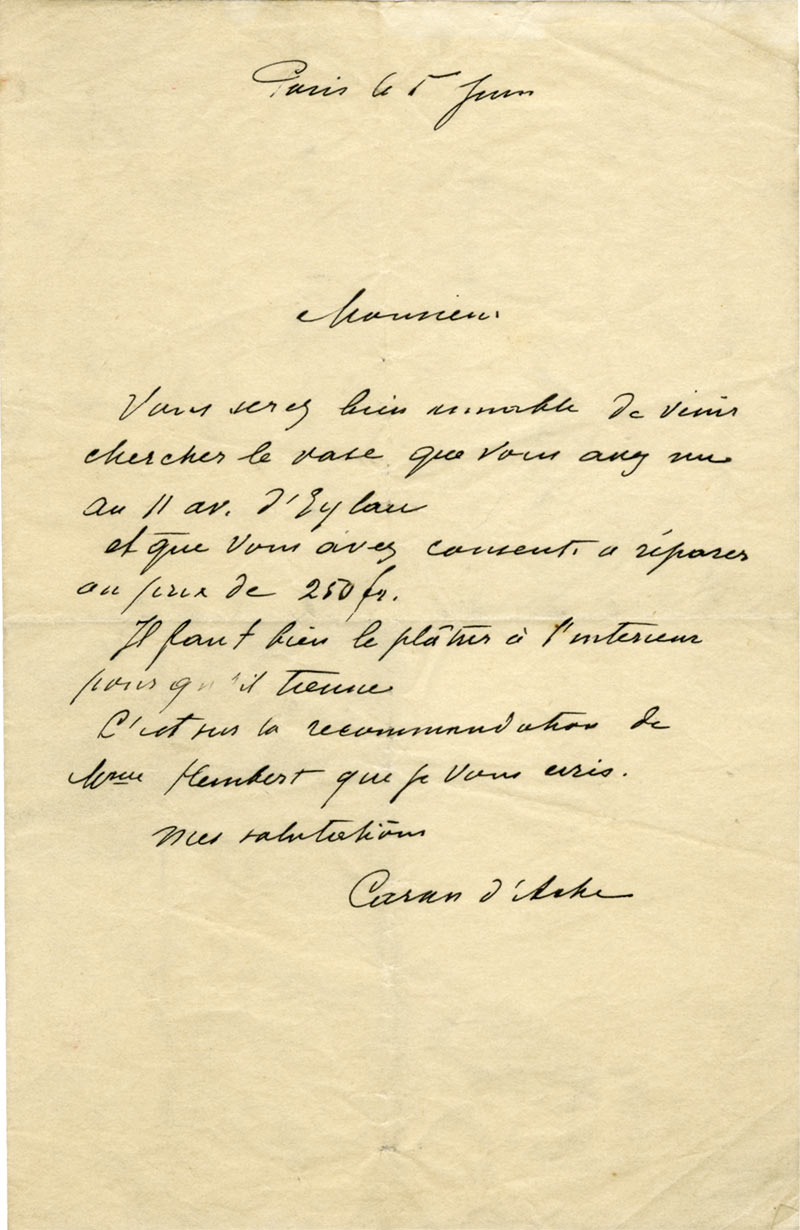 Paris le 5 Juin
Monsieur
Vous serez bien aimable de venir
chercher le vase que vous avez vu
au 11 av. d'Eylau
et que vous avez consenti a réparer
au prix de 250 fr.
Il faut bien le plâtrer à l'interieur
pour qu'il tienne
C'est sur la recommandation de
Mme Hembert que je vous ecris.
Mes salutations
Caran d'Ache